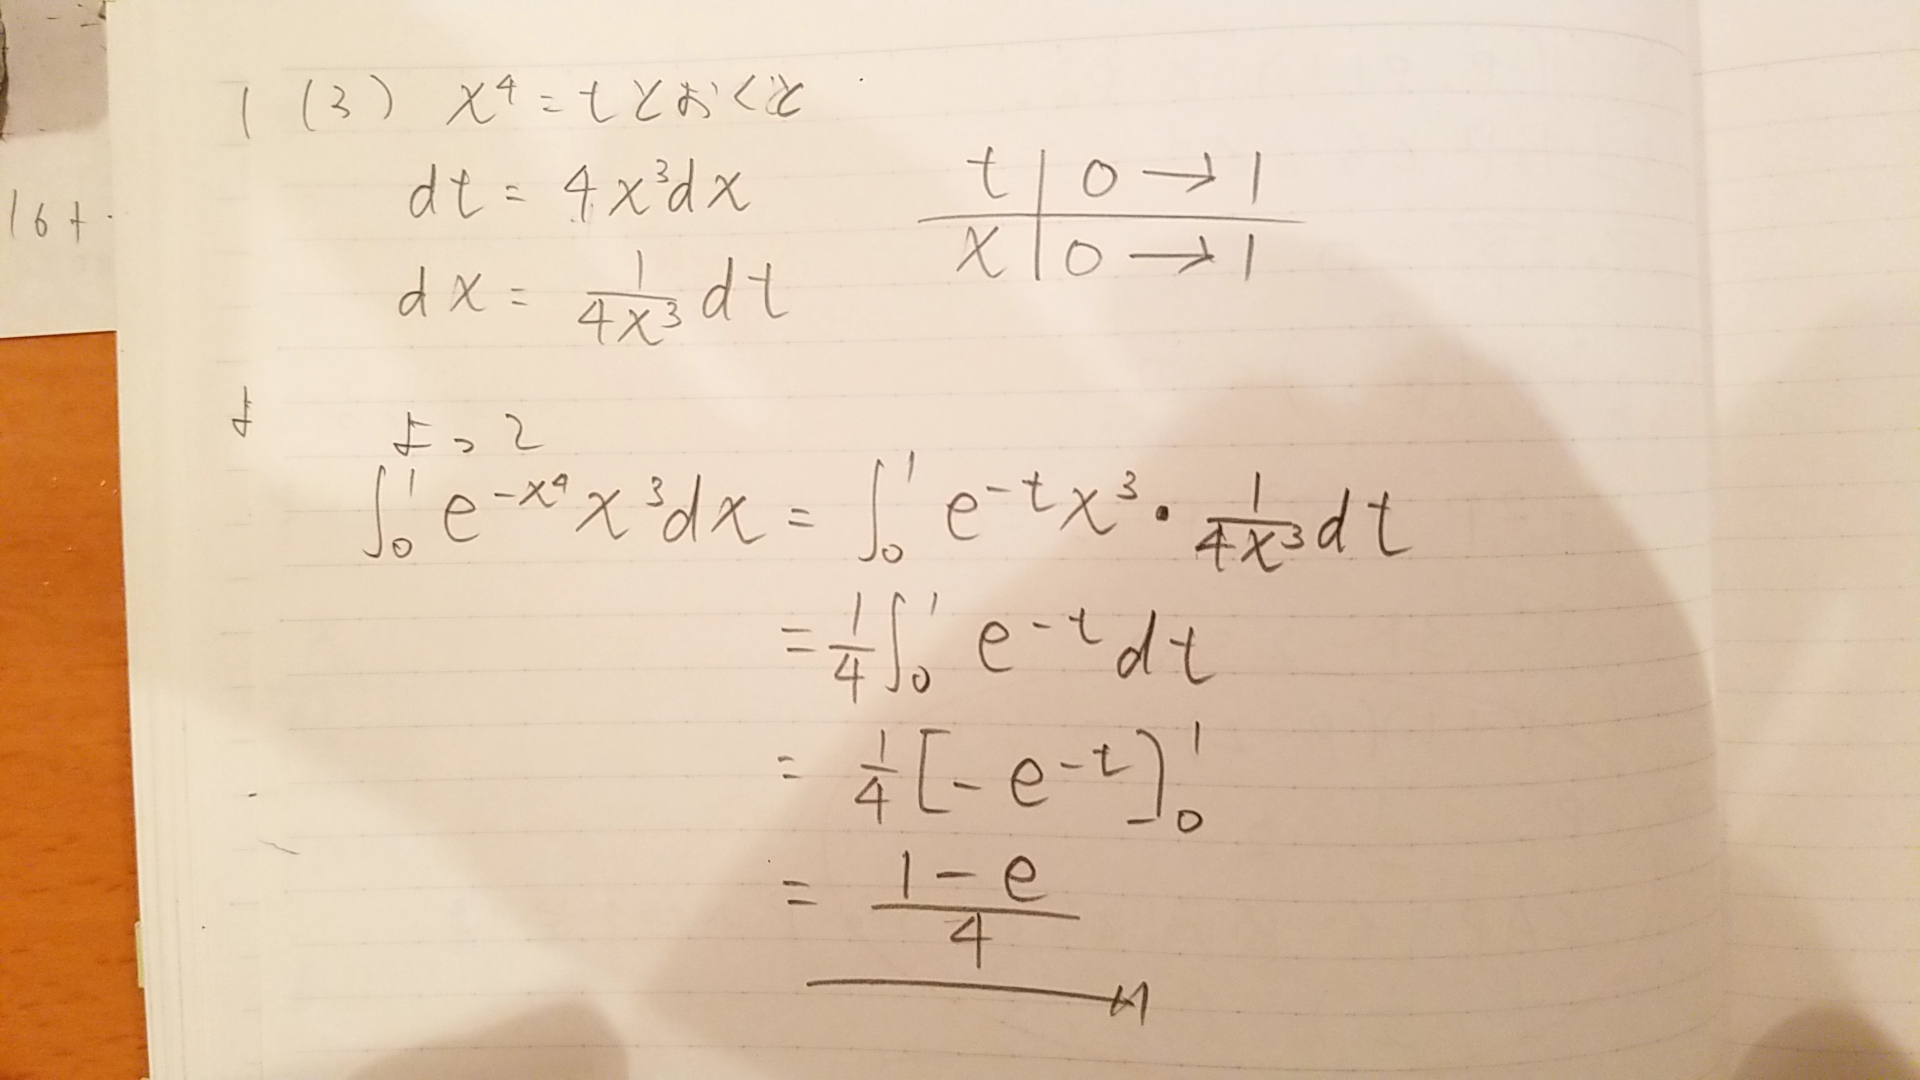 1 (3) x⁴=tとおくと
dt = 4x³dx
dx = 1/4x³ dt
t | 0 → 1
x | 0 → 1
16+
よ
よって
∫₀¹ e^(-x⁴) x³dx = ∫₀¹ e^(-t) x³ · 1/4x³ dt
= 1/4 ∫₀¹ e^(-t) dt
= 1/4 [-e^(-t)]₀¹
= 1-e/4